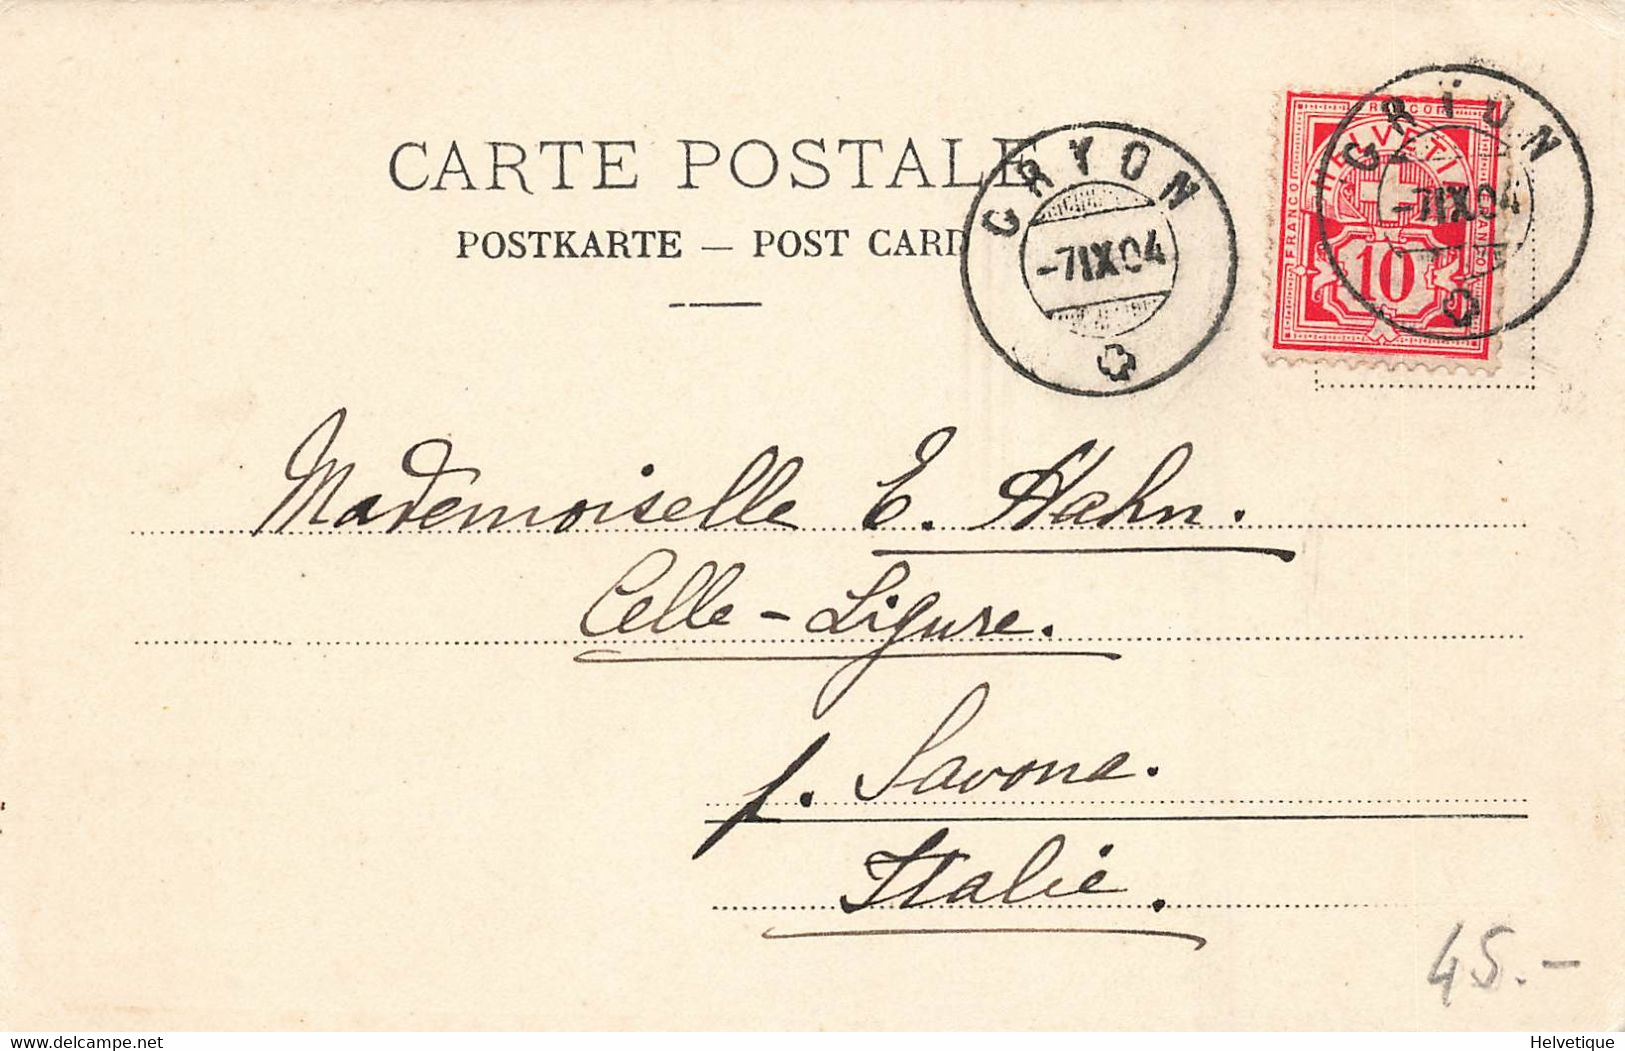 CARTE POSTALE
POSTKARTE — POST CARD
GRYON
-7IX04
FRANCO
HELVETIA
FRANCO
FRANCO
10
GRYON
-7IX04
Mademoiselle E. Hahn.
Celle-Ligure.
p. Savona.
Italie.
45.-
www.delcampe.net
Helvetique